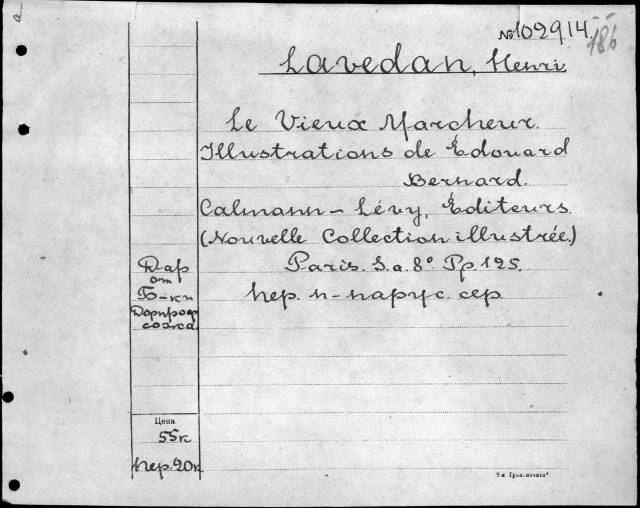 №102914
186
Lavedan, Henri
Le Vieux Marcheur.
Illustrations de Édouard
Bernard.
Calmann-Lévy, Éditeurs.
(Nouvelle Collection illustrée.)
Paris. S.a. 8° Pp 125.
пер. п-парус. сер.
Дар
от
Б-ки
Дорпроф
сожа
Цена
55к
пер. 20к